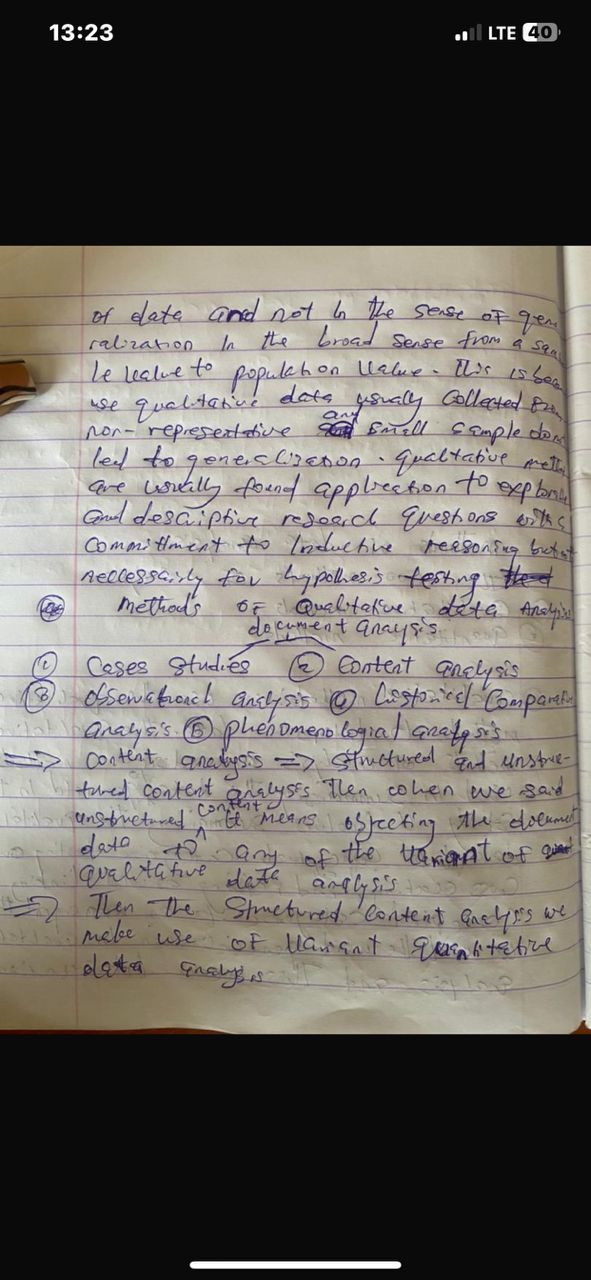 13:23 LTE 40
of data and not in the sense of gene
ralization in the broad sense from a sam
le value to population value. This is beca
use qualitative data usually collected from
non-representative and small sample does
led to generalization. qualtative meth
are usually found application to explorat
and descriptive research questions with c
committment to inductive reasoning but not
neccessarily for hypothesis testing
methods of Qualitative data Analysis
document anaysis
① Cases studies ② Content analysis
③ observational analysis ④ historical Comparative
analysis ⑤ phenomenologial analysis
⇒ content analysis ⇒ structured and unstruc-
tured content analyses then when we said
unstructured content it means objecting the document
data to any of the Variant of
qualitative data analysis
⇒ Then the Structured content analysis we
make use of Variant quantitative
data analysis